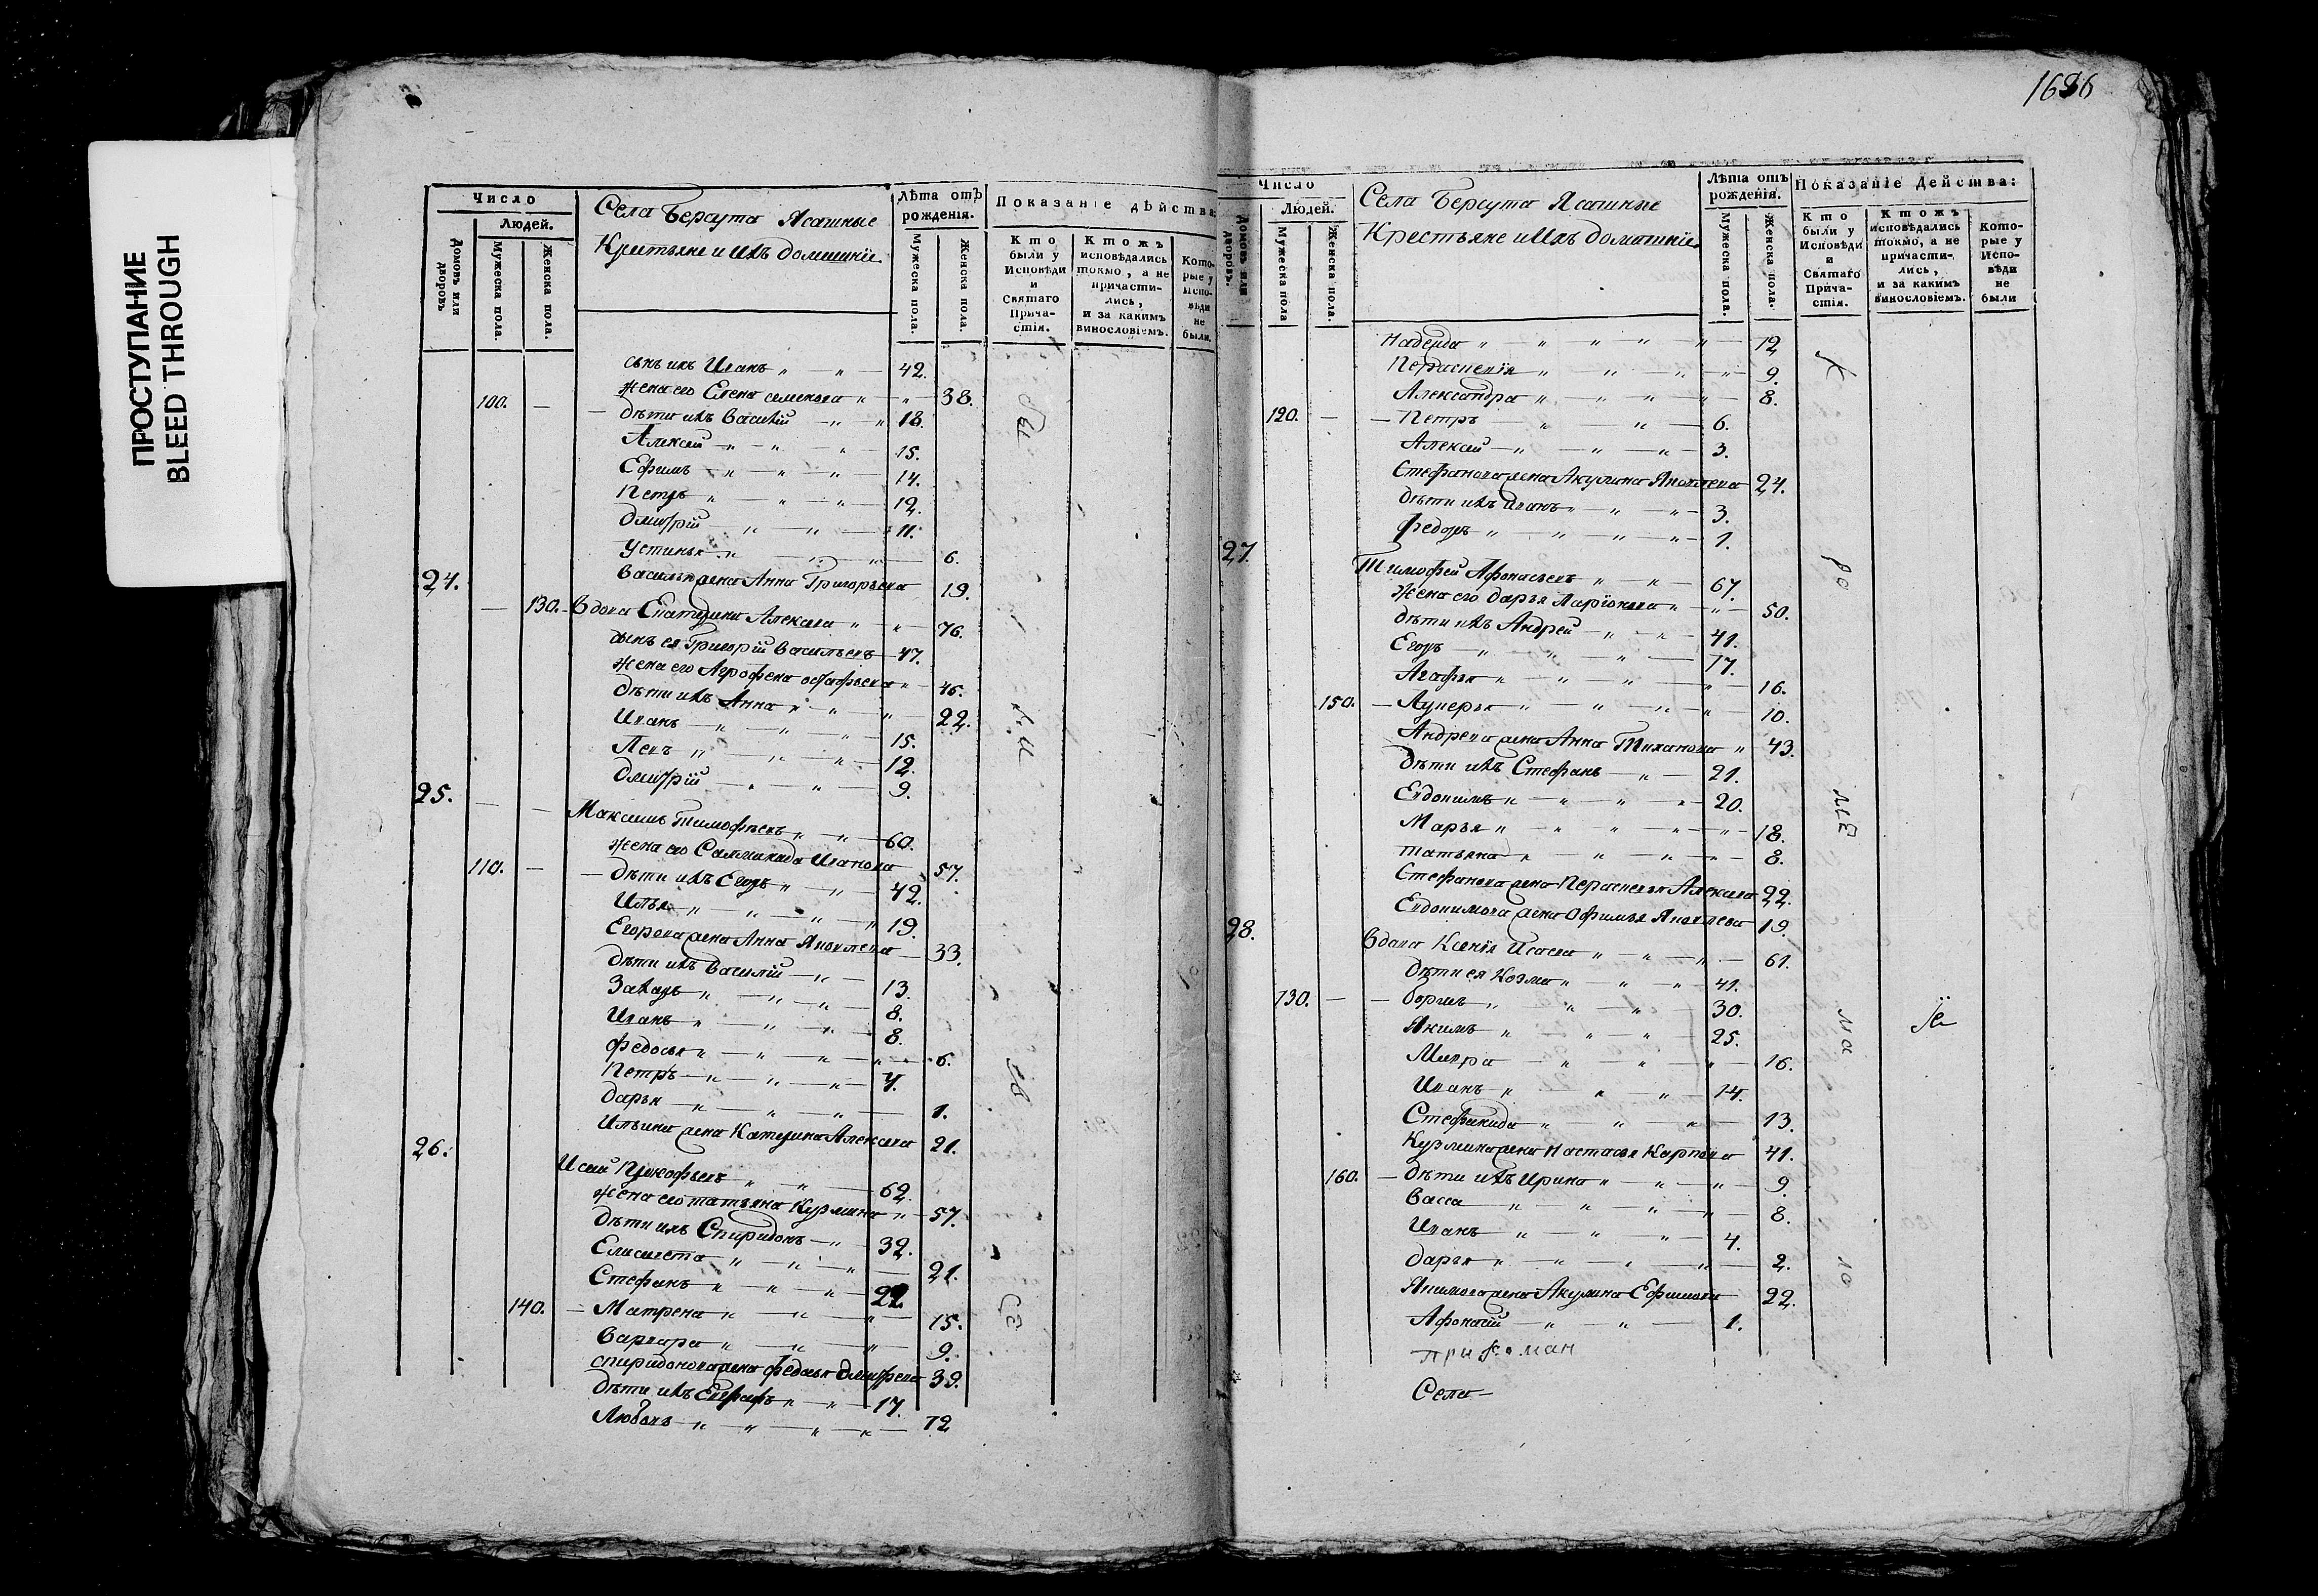 ПРОСТУПАНИЕ
BLEED THROUGH
Число
Людей.
Домовъ или дворовъ
Мужеска пола.
Женска пола.
Села Берсута Ясашные
Крестьяне и ихъ домашніе
Лѣта отъ рожденія.
Мужеска пола.
Женска пола.
Показаніе дѣйства
Кто были у Исповѣди и Святаго Прича-стія.
Ктожъ исповѣдались токмо, а не причасти-лись, и за какимъ винословіемъ.
Кото-рые у Испо-вѣди не были.
сынъ ихъ Иванъ 42.
жена его Елена семенова 38.
100. дѣти ихъ Василій 18.
Алексей 15.
Ефимъ 14.
Петръ 12.
Дмитрій 11.
Устинья 6.
Васильева жена Анна Григорьева 19.
24. 130. Вдова Екатерина Алексеева 76.
сынъ ея Григорій Васильевъ 47.
жена его Агрофена 46.
дѣти ихъ Анна 22.
Иванъ 15.
Левъ 12.
Дмитрій 9.
25. Максимъ Тимофѣевъ 60.
жена его Саломанида Иванова 57.
110. дѣти ихъ Егоръ 42.
Илья 19.
Егорова жена Анна Яковлева 33.
дѣти ихъ Василій 13.
Захаръ 8.
Иванъ 8.
Федосья 6.
Петръ 4.
Дарья 1.
Ильина жена Катерина Алексеева 21.
26. Исай Прокофьевъ 62.
жена его татьяна Кузмина 57.
дѣти ихъ Спиридонъ 32.
Елисавета 21.
Стефанъ 22.
140. Матрена 15.
Варвара 9.
Спиридонова жена Федосья Дмитрева 39.
дѣти ихъ Евграфъ 17.
Любовь 12
1686
Число
Людей.
Домовъ или дворовъ.
Мужеска пола
Женска пола.
Села Берсута Ясашные
Крестьяне и ихъ домашніе
Лѣта отъ рожденія.
Мужеска пола.
Женска пола.
Показаніе Действа:
Кто были у Исповѣди и Святаго Прича-стія.
Ктожъ исповѣдались токмо, а не причасти-лись, и за какимъ винословіемъ.
Кото-рые у Испо-вѣди не были
Надежда 12
Парасковія 9.
Александра 8.
120. Петръ 6.
Алексей 3.
Стефанова жена Акулина Яковлева 24.
дѣти ихъ Иванъ 3.
Федоръ 1.
27. Тимофей Афонасьевъ 67.
жена его Дарья Ларіонова 50.
дѣти ихъ Андрей 41.
Егоръ 17.
Агафья 16.
150. Лукерья 10.
Андреева жена Анна Тиханова 43.
дѣти ихъ Стефанъ 21.
Евдокимъ 20.
Марья 18.
татьяна 8.
Стефанова жена Парасковья Алексеева 22.
Евдокимова жена Офимья Яковлева 19.
28. Вдова Ксенія Исаева 61.
дѣти ея Козма 41.
130. Борисъ 30.
Якимъ 25.
Мавра 16.
Иванъ 14.
Стефанида 13.
Кузмина жена Настасья Карпова 41.
160. дѣти ихъ Ирина 9.
Васса 8.
Иванъ 4.
Дарья 2.
Якимова жена Акулина Ефимова 22.
Афонасій 1.
Села